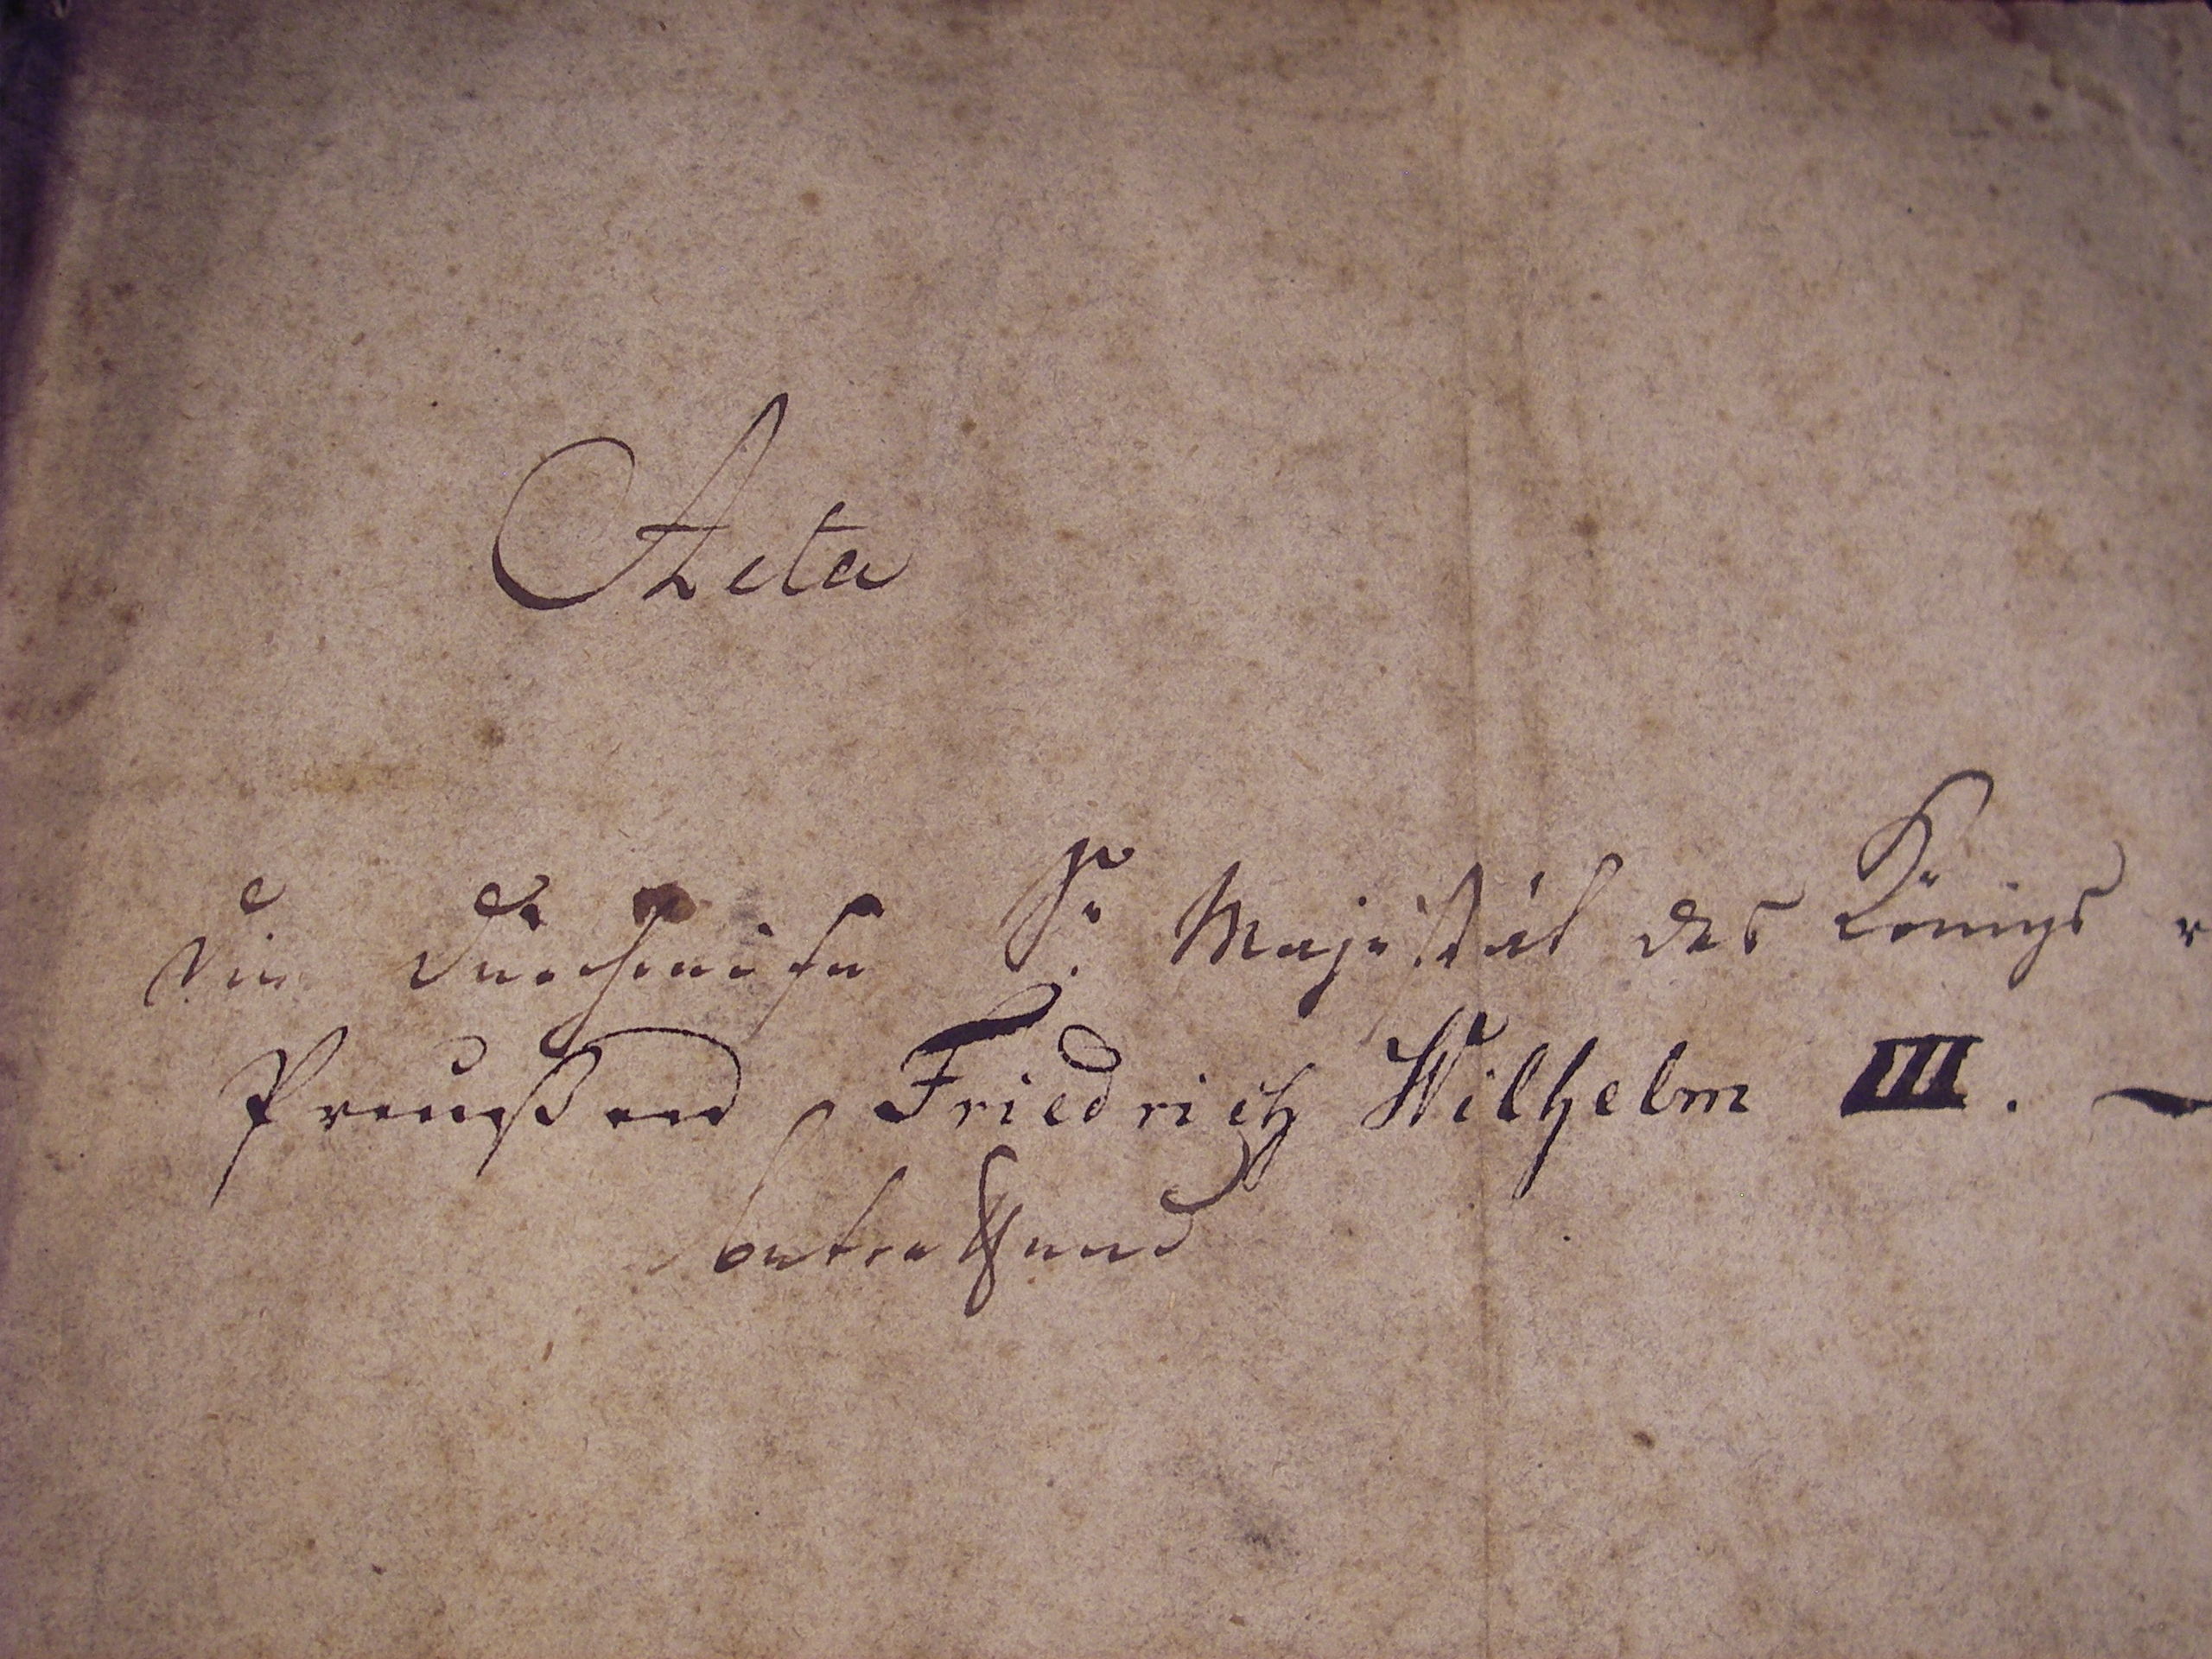 Acta
die Durchreise Sr. Majestät des Königs v
Preußen Friedrich Wilhelm III. —
betreffend